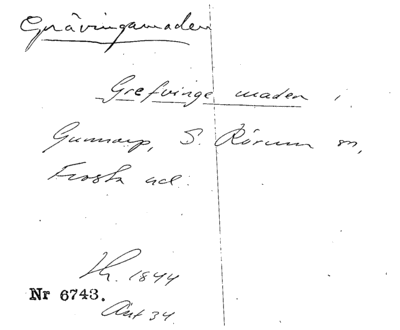 Grävingamaden
Grefvinge maden i
Gunnarp, S. Rörum sn,
Frosta hd.
1844
Nr 6743.
Akt 34